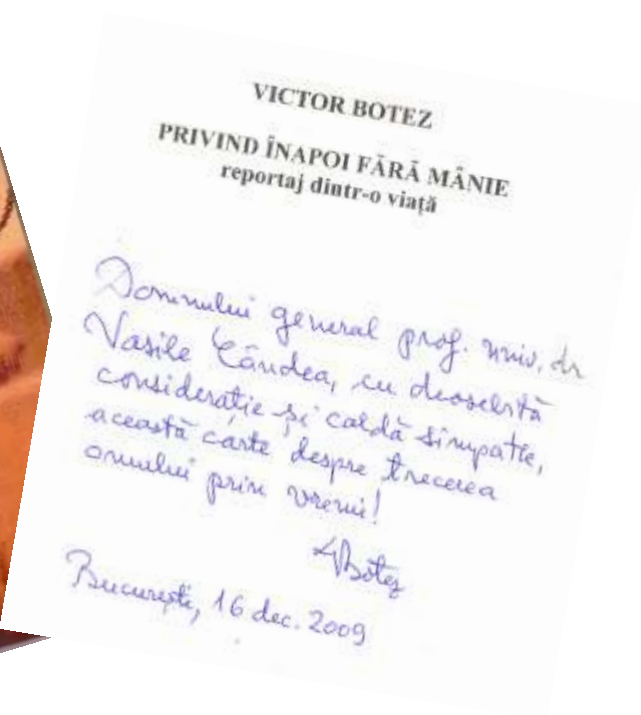 VICTOR BOTEZ
PRIVIND ÎNAPOI FĂRĂ MÂNIE
reportaj dintr-o viață
Domnului general prof. univ. dr
Vasile Cândea, cu deosebită
considerație și caldă simpatie,
această carte despre trecerea
omului prin vremi!
VBotez
București, 16 dec. 2009